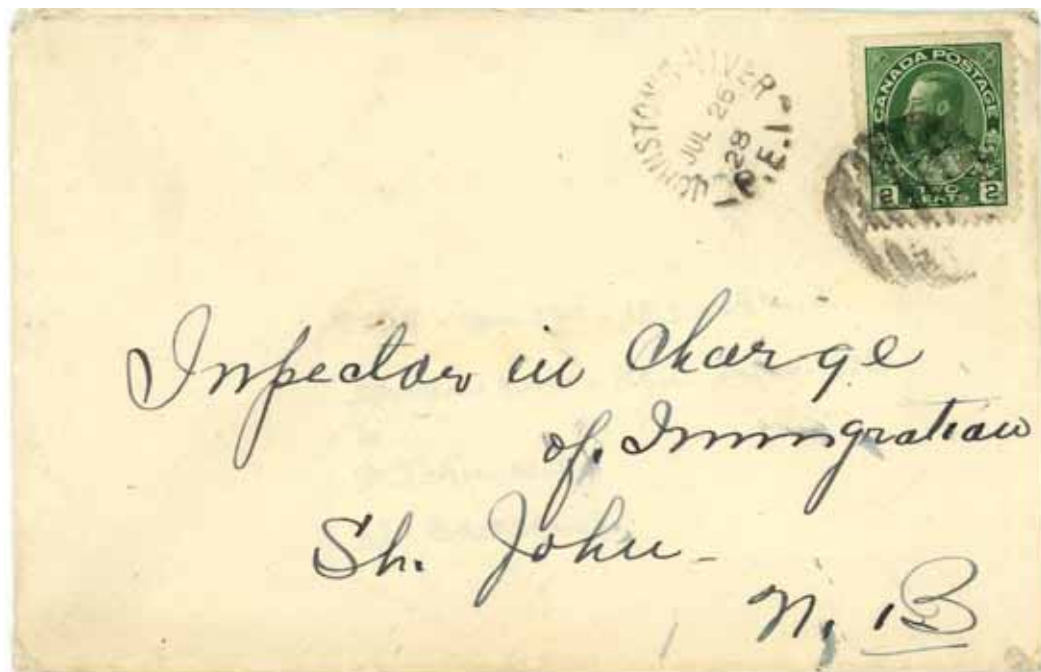 JOHNSTON'S RIVER
JUL 26
28
P.E.I
CANADA POSTAGE
2 TWO CENTS 2
Inspector in Charge
of. Immigration
St. John -
N. B